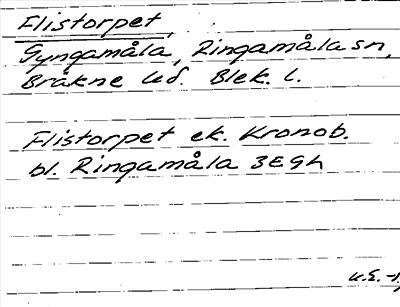 Flistorpet,
Gyngamåla, Ringamåla sn,
Bräkne hd. Blek. l.
Flistorpet ek. Kronob.
bl. Ringamåla 3E9h